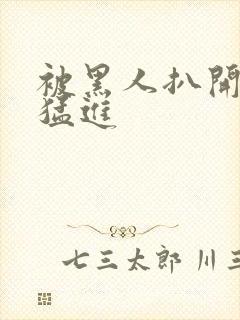 被黑人扒開
猛進
七三太郎 川三